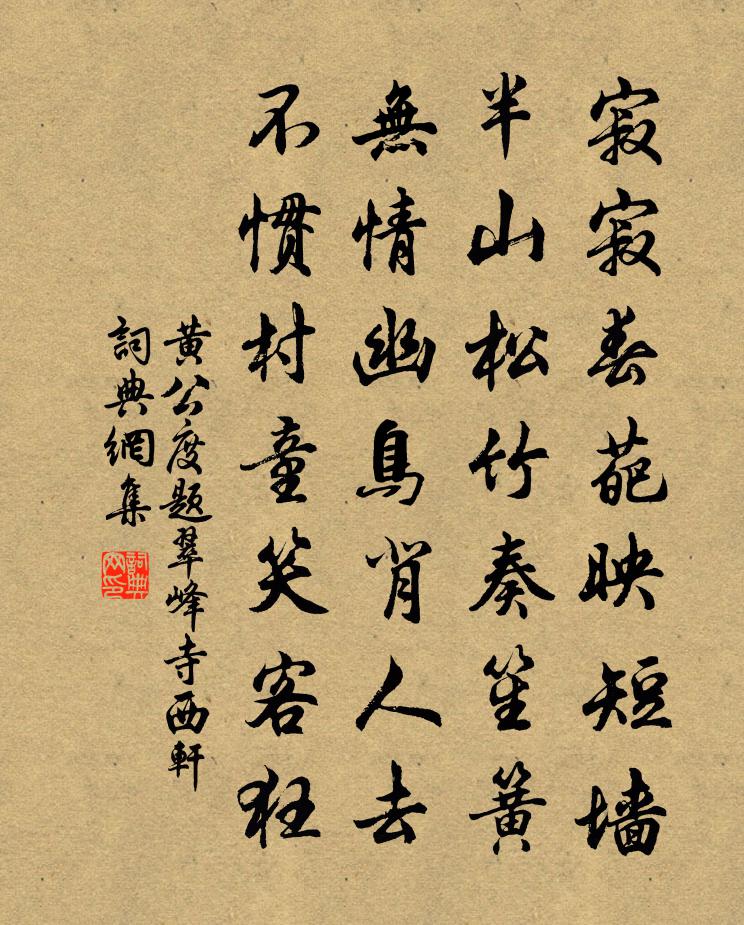 寂寂春葩映短墙
半山松竹奏笙簧
無情幽鳥背人去
不慣村童笑客狂
黄公度题翠峰寺西軒
詞典網集
詞典網印